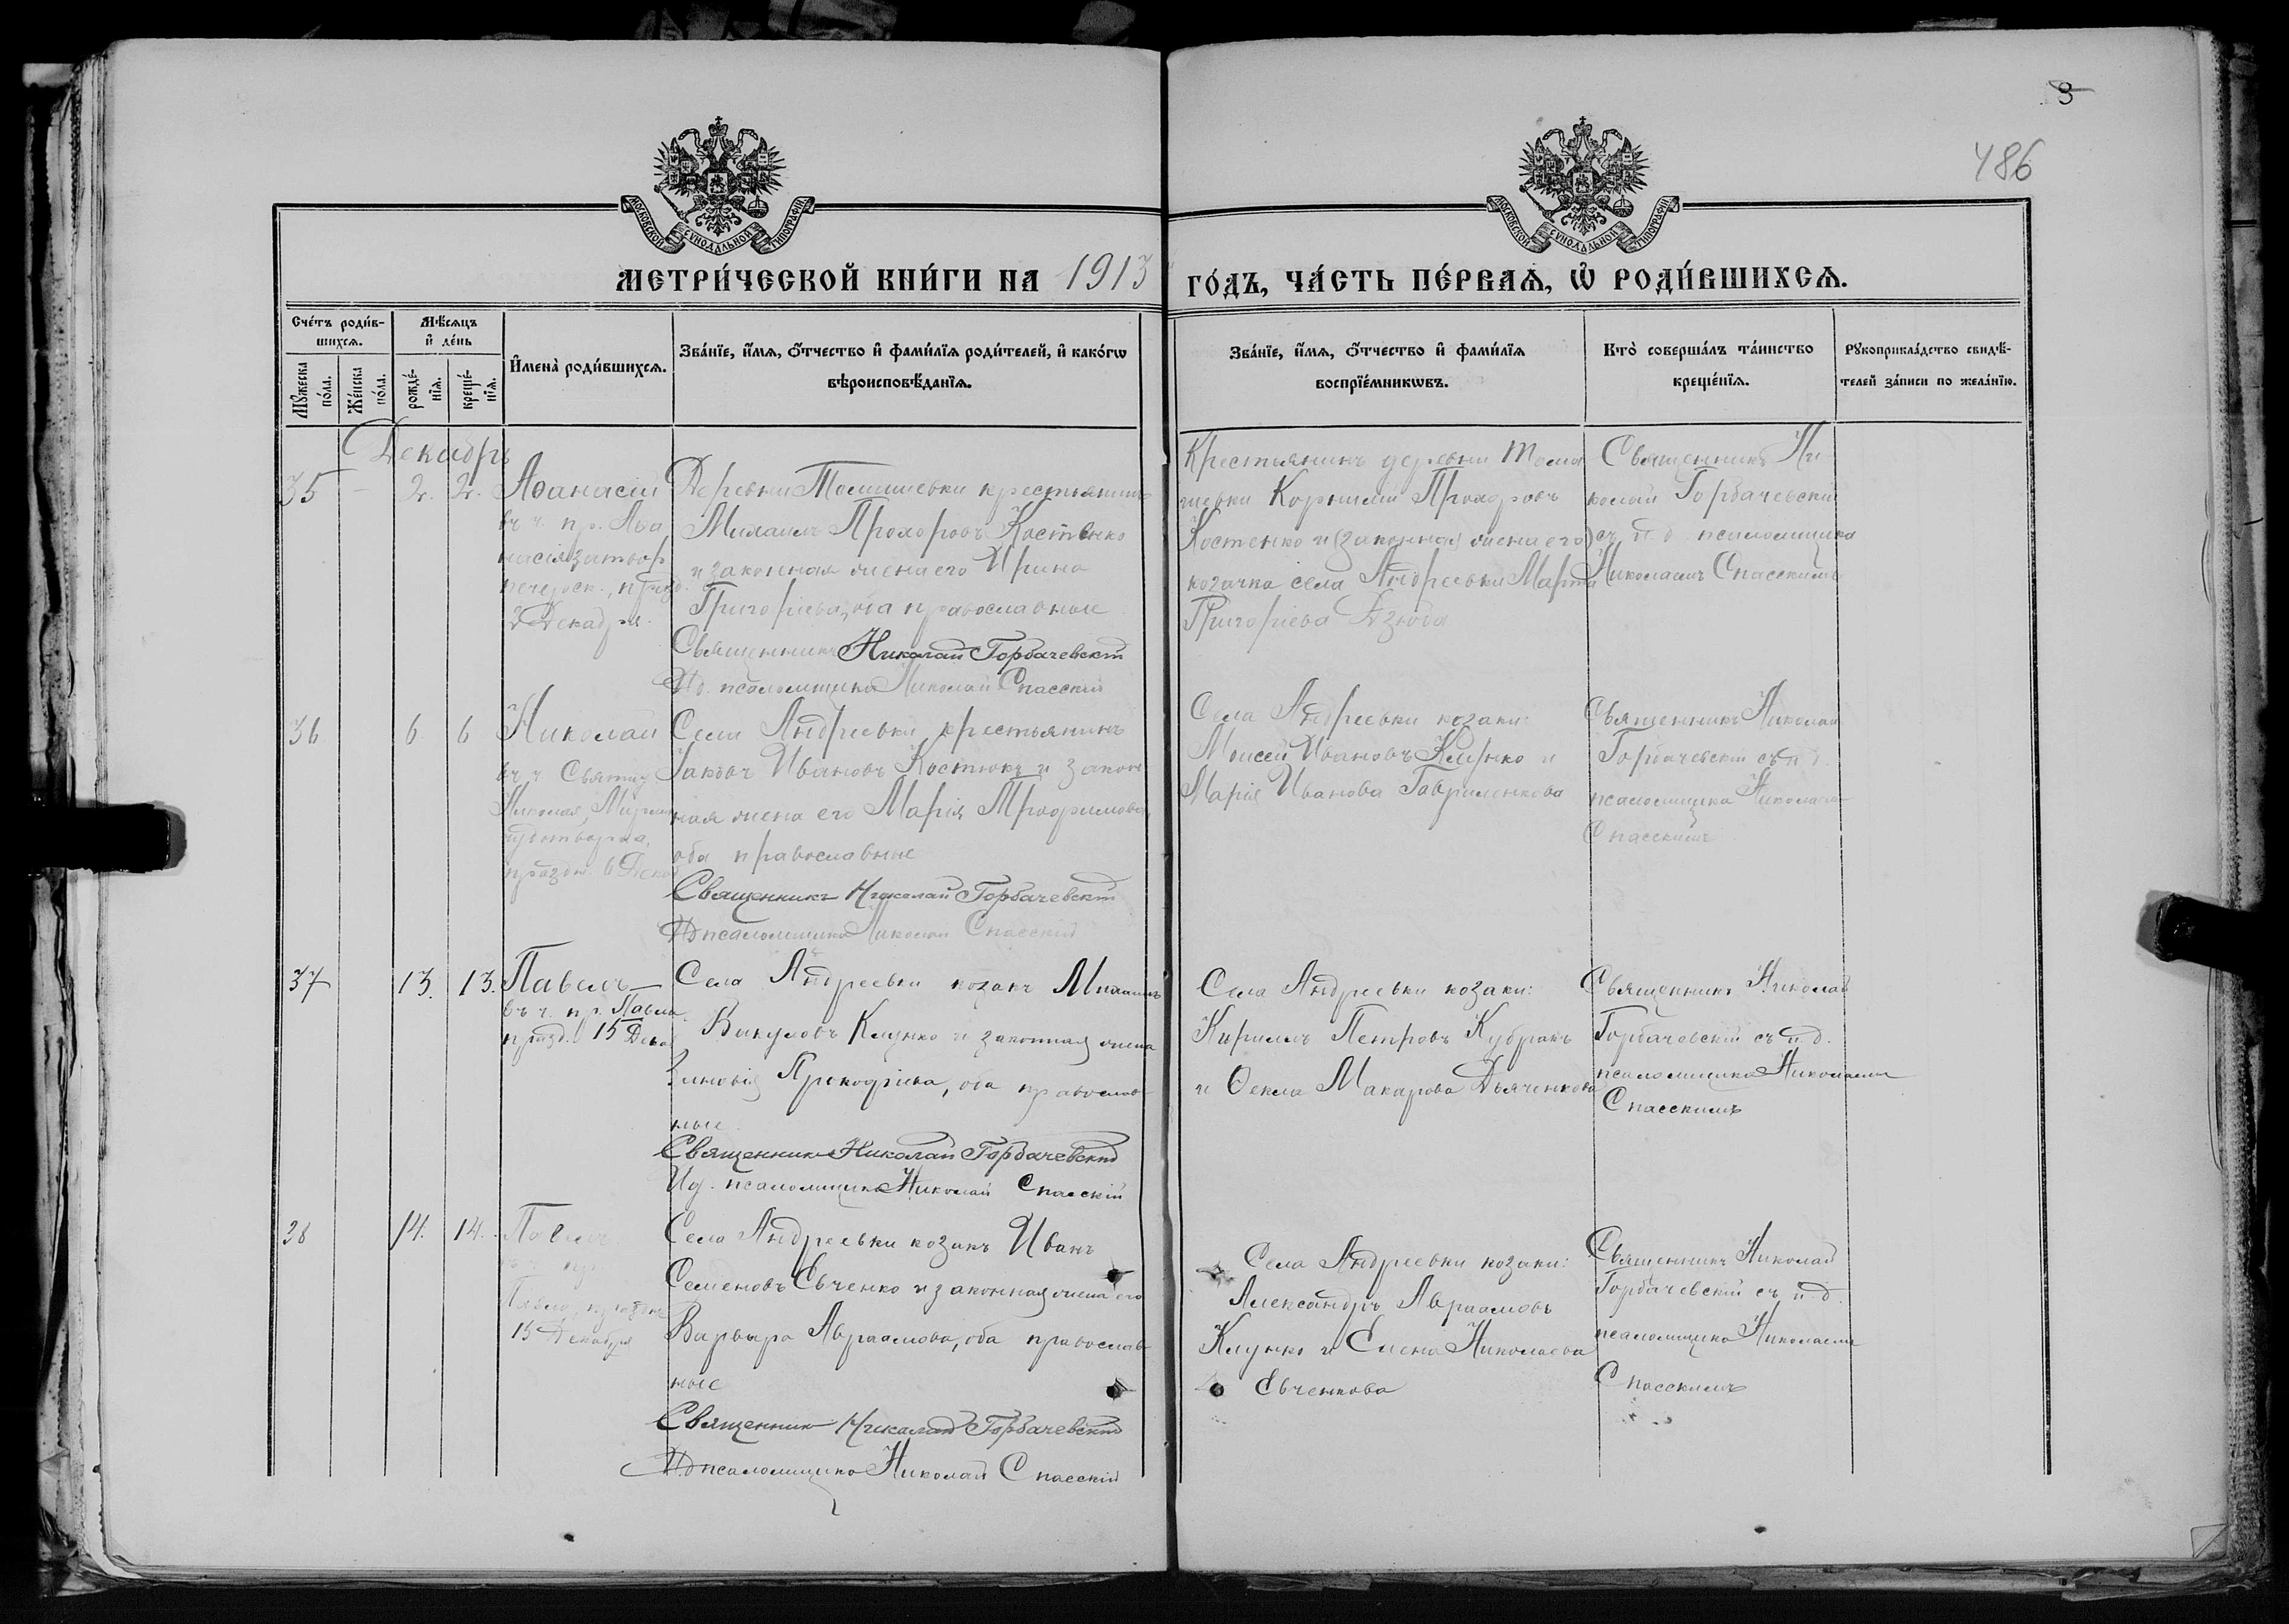 3
486
МОСКОВСКОЙ СѴНОДАЛЬНОЙ ТИПОГРАФІИ
МОСКОВСКОЙ СѴНОДАЛЬНОЙ ТИПОГРАФІИ
МЕТРИ́ЧЕСКОЙ КНИ́ГИ НА 1913 ГО́ДЪ, ЧА́СТЬ ПЕ́РВАѦ, Ѡ҆ РОДИ́ВШИХСѦ.
Сче́тъ роди́в-
шихсѧ.
Мꙋ́жеска по́ла.
Же́нска по́ла.
Мѣ́сѧцъ
и҆ де́нь
рожде́-
нїѧ.
креще́-
нїѧ.
И҆мена̀ роди́вшихсѧ.
Зва́нїе, и҆́мѧ, о҆́тчество и҆ фами́лїѧ роди́телей, и҆ како́гѡ
вѣроисповѣ́данїѧ.
Зва́нїе, и҆́мѧ, о҆́тчество и҆ фами́лїѧ
воспрїе́мникѡвъ.
Кто̀ соверша́лъ та́инство
креще́нїѧ.
Рꙋкоприкла́дство свидѣ́-
телей за́писи по жела́нїю.
Декабрь
35 – 2. 2.
Аѳанасій
въ ч. пр. Аѳа
насія затвор.
печерск., празд.
2 Декабря.
Деревни Томишевки крестьянинъ
Михаилъ Прохоровъ Костенко
и законная жена его Ирина
Григоріева, оба православные
Священникъ Николай Горбачевскій
И. д. псаломщика Николай Спасскій
Крестьянинъ деревни Томи
шевки Корнилій Прохоровъ
Костенко и (законная жена его)
козачка села Андреевки Марта
Григоріева Дзюба
Священникъ Ни
колай Горбачевскій
съ и. д. псаломщика
Николаемъ Спасскимъ
36 6 6
Николай
въ ч. Святит.
Николая, Мирлик.
чудотворца,
праздн. 6 Декаб.
Села Андреевки крестьянинъ
Іаковъ Ивановъ Костюкъ и закон
ная жена его Марія Трофимова,
оба православные
Священникъ Николай Горбачевскій
И. д. псаломщика Николай Спасскій
Села Андреевки козаки:
Моисей Ивановъ Клунко и
Марія Иванова Гавриленкова
Священникъ Николай
Горбачевскій съ и. д.
псаломщика Николаемъ
Спасскимъ
37 13. 13.
Павелъ
въ ч. пр. Павла
празд. 15 Декаб.
Села Андреевки козакъ Михаилъ
Викуловъ Клунко и законная жена
Зиновія Прокофіева, оба православ
ные.
Священникъ Николай Горбачевскій
И. д. псаломщика Николай Спасскій
Села Андреевки козаки:
Кириллъ Петровъ Кубракъ
и Ѳекла Макарова Дьяченкова
Священникъ Николай
Горбачевскій съ и. д.
псаломщика Николаемъ
Спасскимъ
38 14. 14.
Павелъ
въ ч. пр.
Павла, праздн.
15 Декабря
Села Андреевки козакъ Иванъ
Семеновъ Евченко и законная жена его
Варвара Авраамова, оба православ
ные
Священникъ Николай Горбачевскій
И. д. псаломщика Николай Спасскій
Села Андреевки козаки:
Александръ Авраамовъ
Клунко и Елена Николаева
Евченкова
Священникъ Николай
Горбачевскій съ и. д.
псаломщика Николаемъ
Спасскимъ